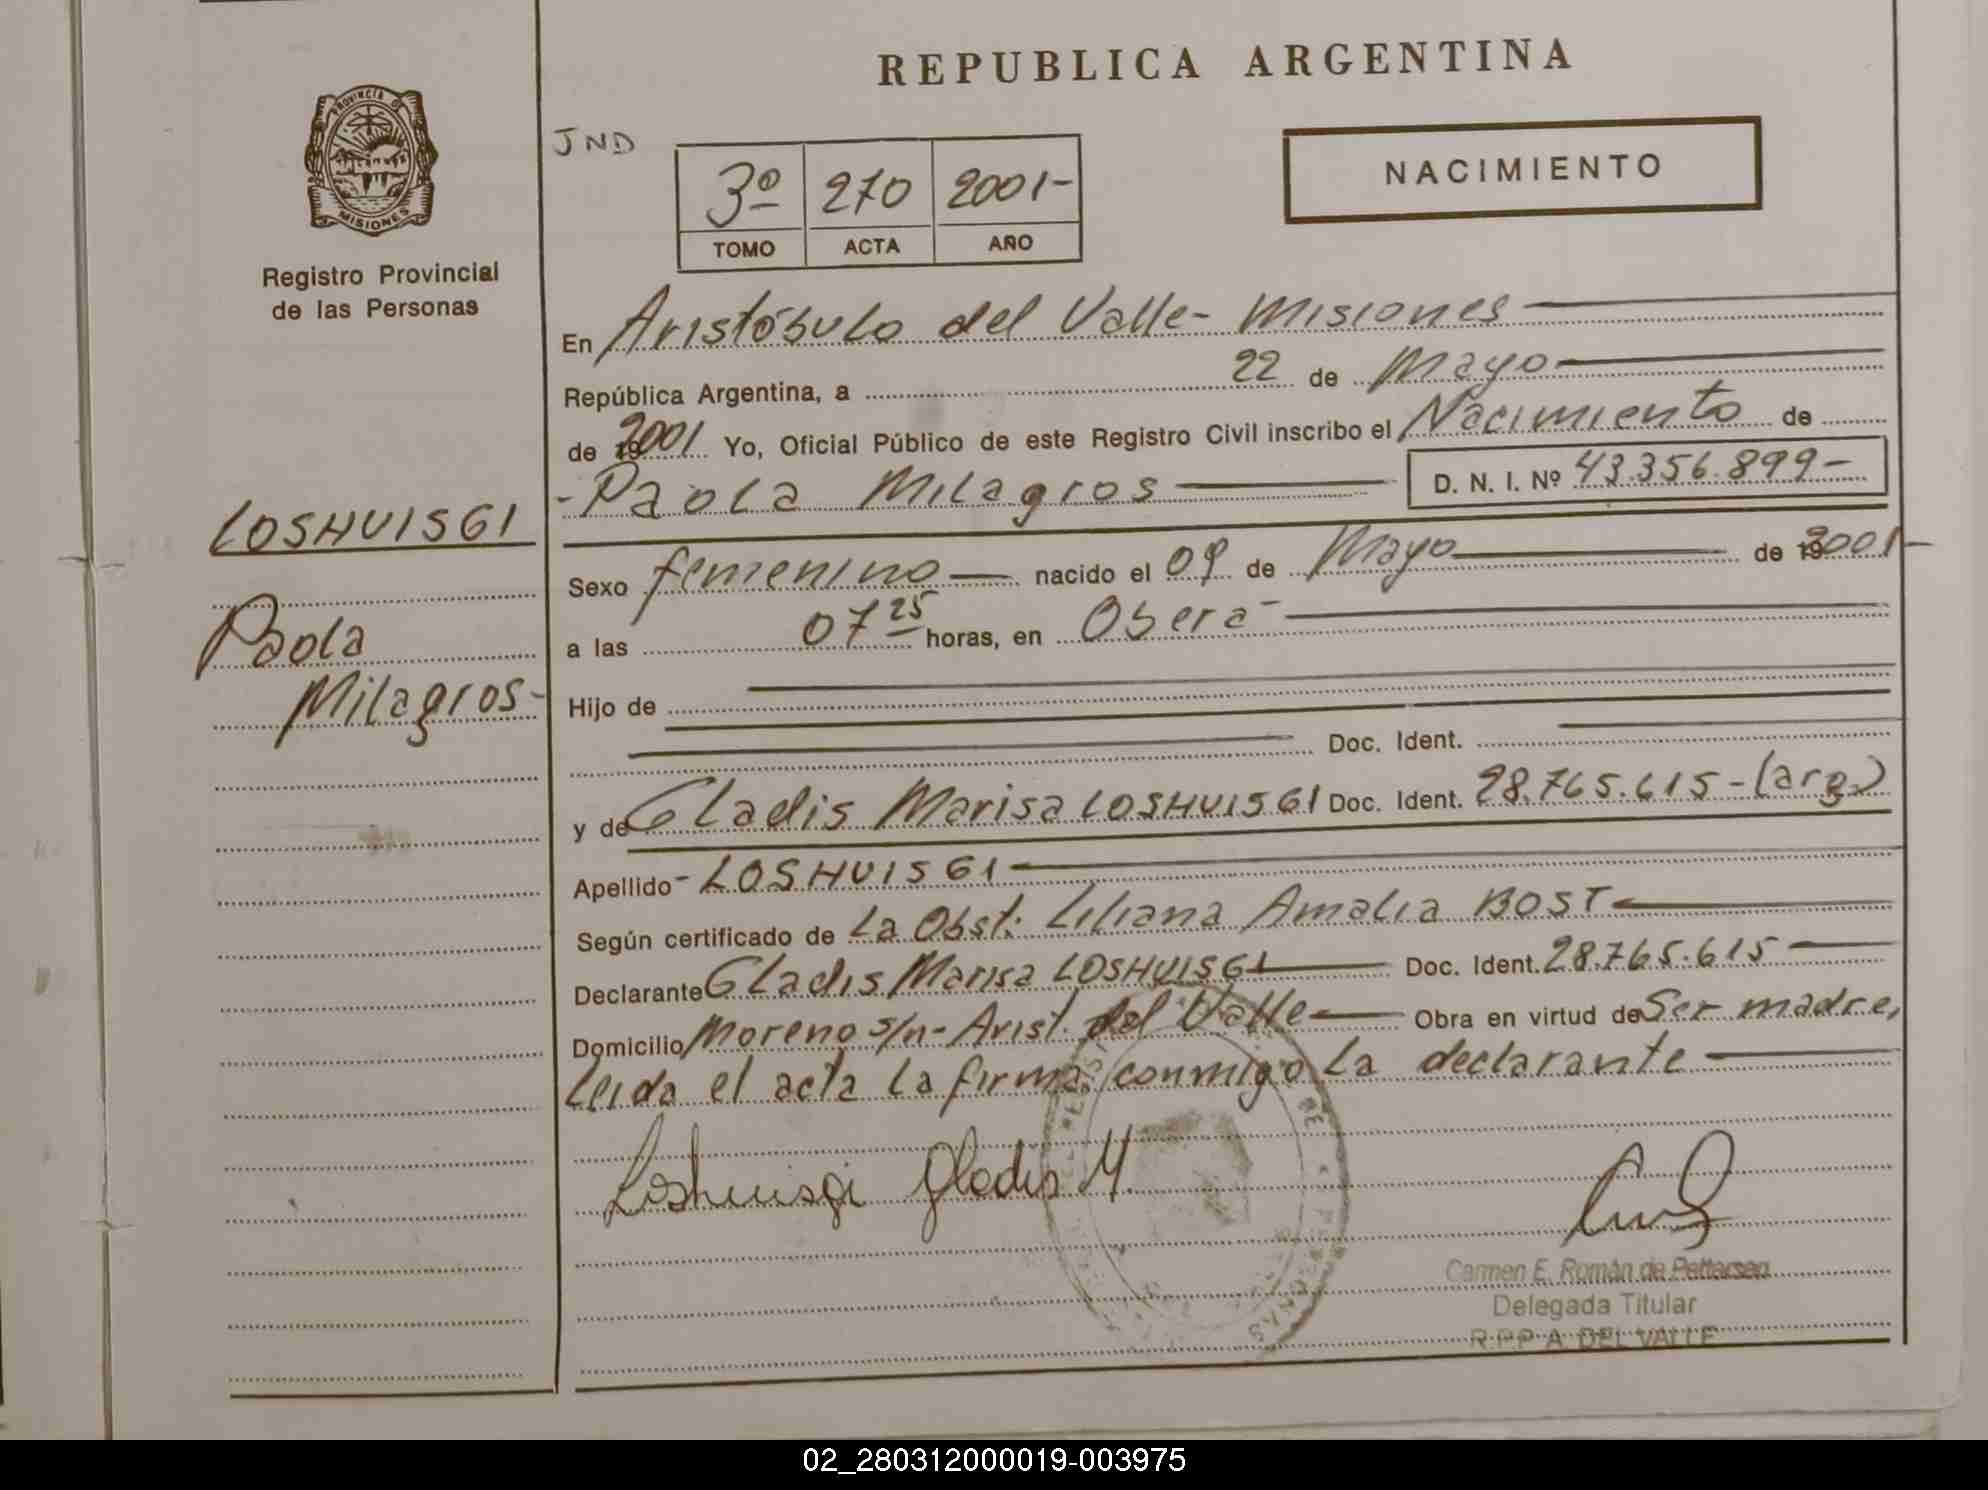 REPUBLICA ARGENTINA
PROVINCIA DE
MISIONES
Registro Provincial
de las Personas
JND
3º 270 2001-
TOMO ACTA AÑO
NACIMIENTO
En Aristóbulo del Valle- Misiones
República Argentina, a 22 de Mayo
de 2001 Yo, Oficial Público de este Registro Civil inscribo el Nacimiento de
-Paola Milagros D. N. I. Nº 43.356.899-
LOSHUISGI
Paola
Milagros-
Sexo femenino nacido el 09 de Mayo de 2001-
a las 07 25 horas, en Oberá
Hijo de
Doc. Ident.
y de Gladis Marisa LOSHUISGI Doc. Ident. 28.765.615-(arg.)
Apellido - LOSHUISGI
Según certificado de La Obst. Liliana Amalia BOST
Declarante Gladis Marisa LOSHUISGI Doc. Ident. 28.765.615
Domicilio Moreno s/n- Arist. del Valle Obra en virtud de Ser madre,
Leida el acta la firma conmigo La declarante
Loshuisgi Gladis M.
Carmen E. Román de Pettersen
Delegada Titular
R.P.P. A. DEL VALLE
02_280312000019-003975